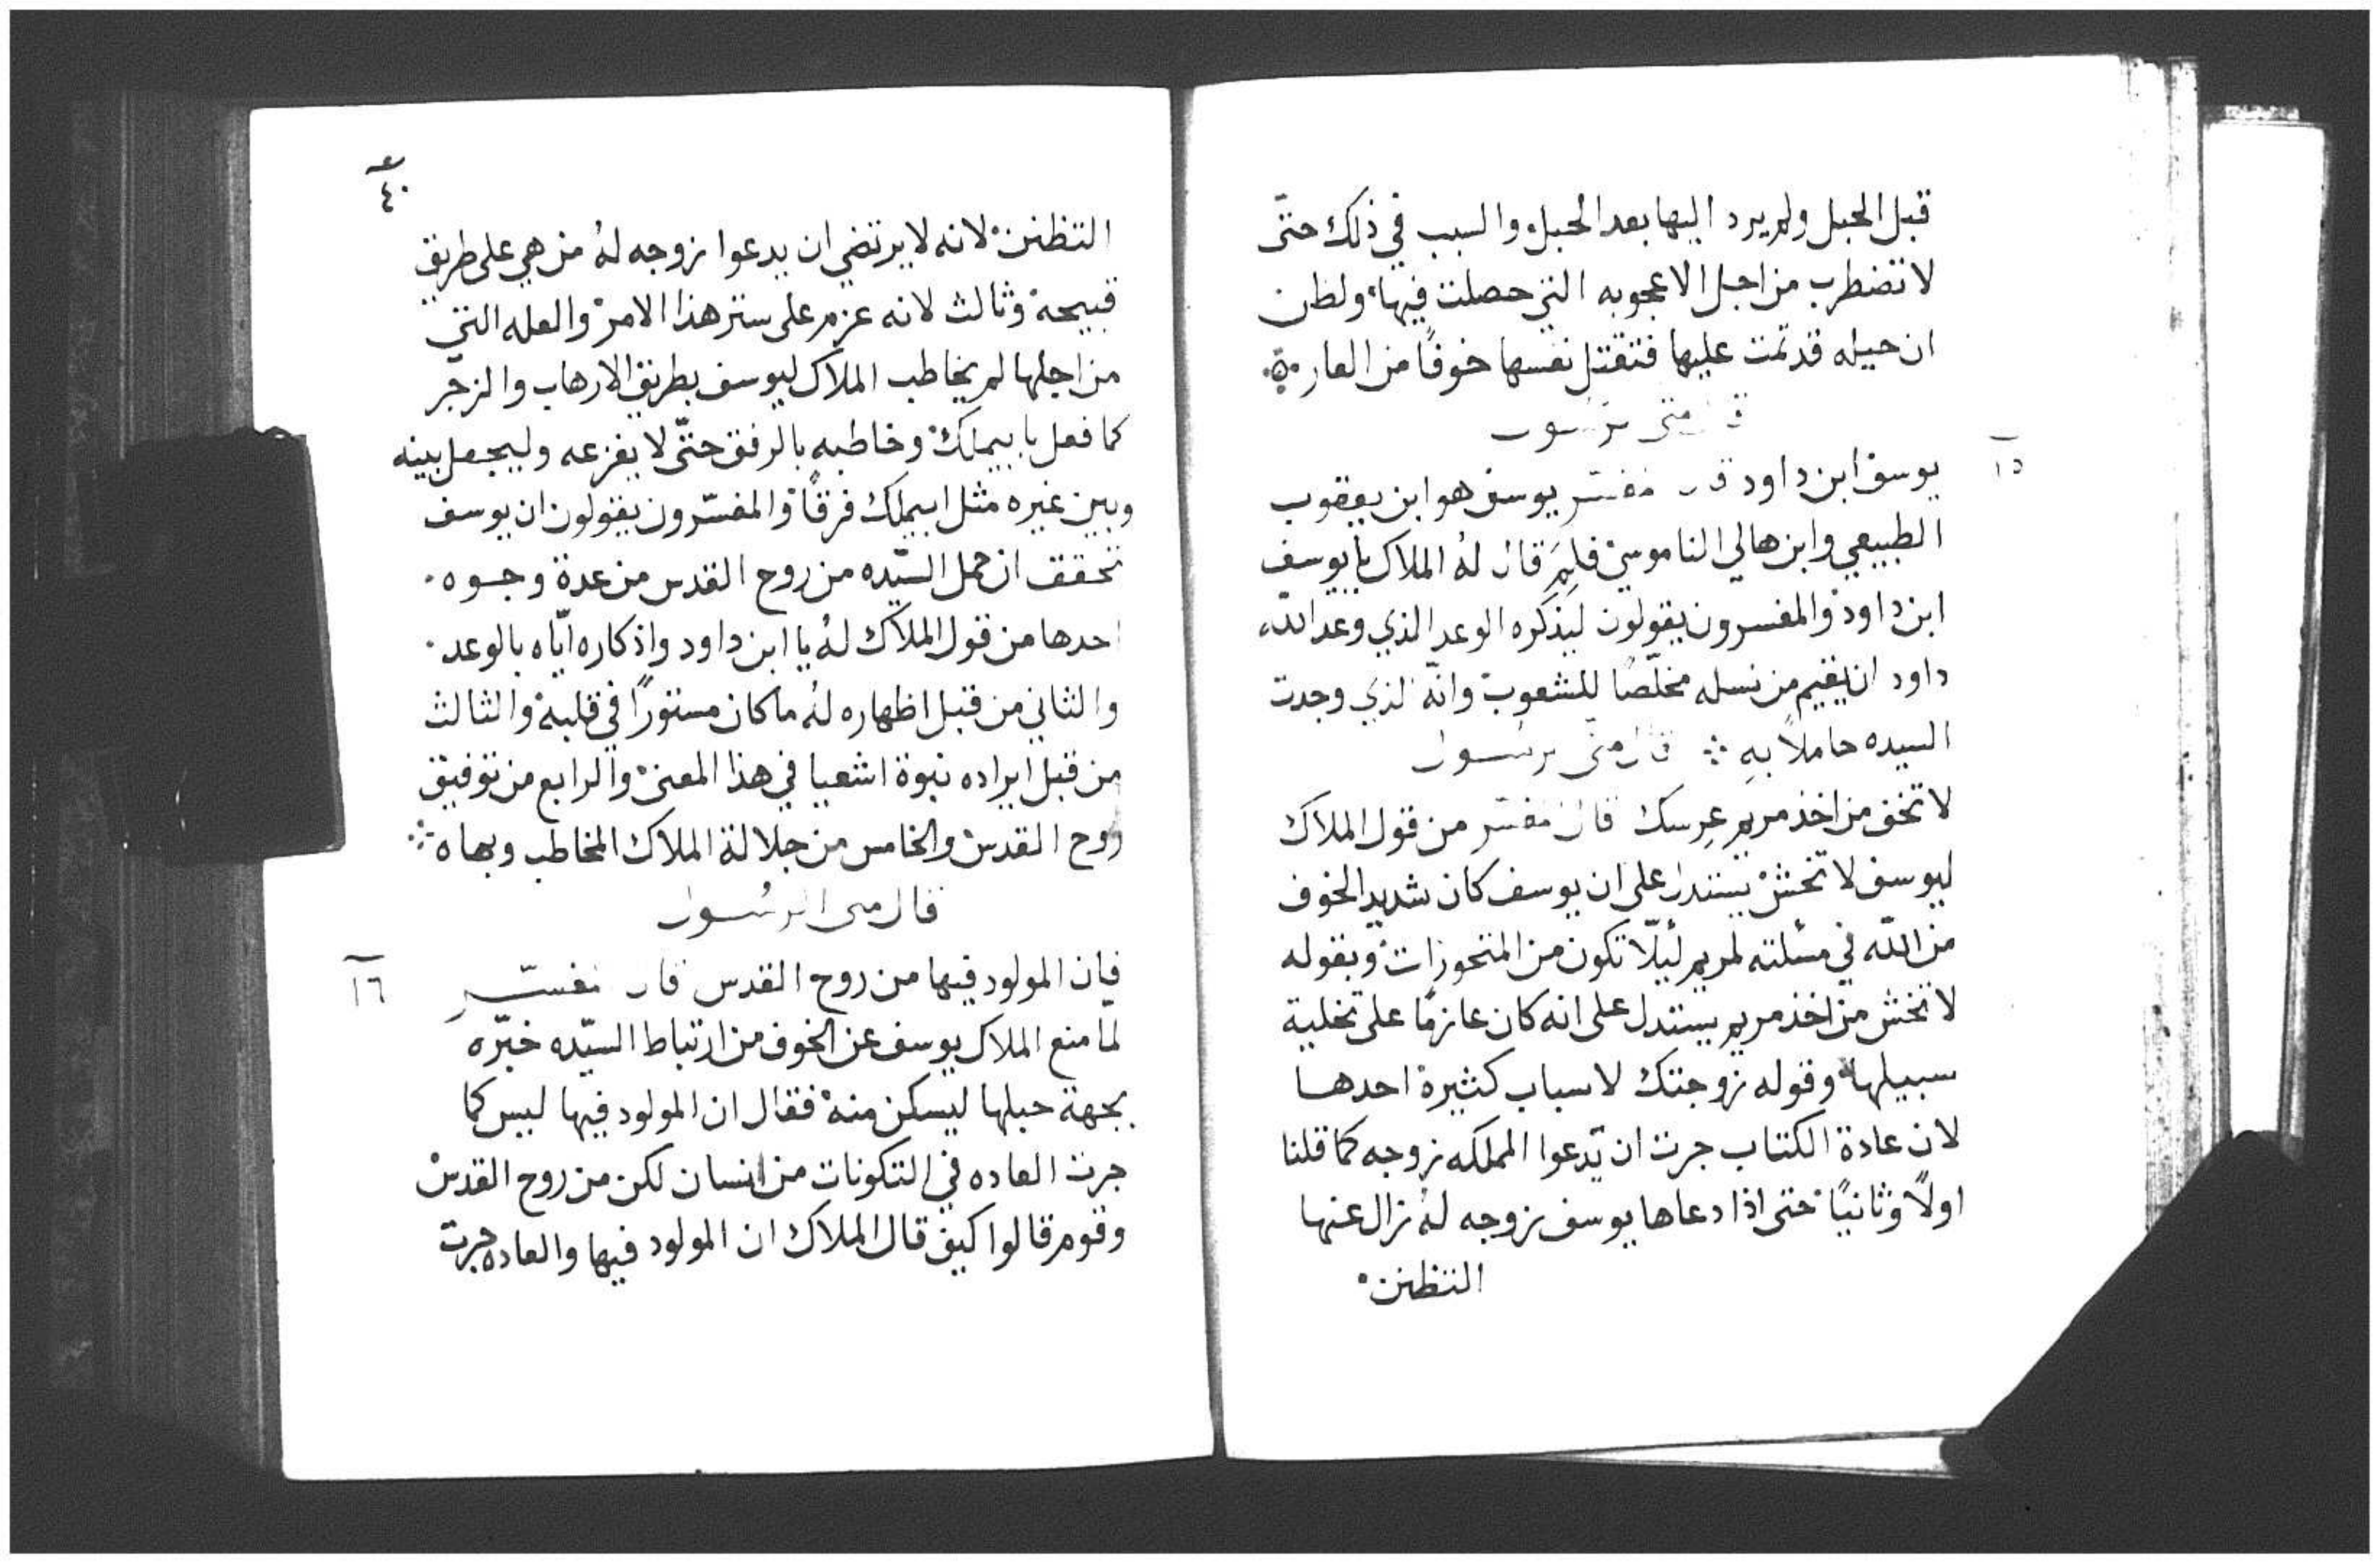 قبل الحبل ولم يرد اليها بعد الحبل والسبب في ذلك حتّى
لا تضطرب من اجل الاعجوبه التي حصلت فيها ولظن
ان حيله قد تمت عليها فتقتل نفسها خوفًا من العار
قال متى الرسول
١٥
يوسف ابن داود قال المفسّر يوسف هو ابن يعقوب
الطبيعي وابن هالي الناموسي فلِمَ قال لهُ الملاك يا يوسف
ابن داود والمفسرون يقولون ليذكره الوعد الذي وعد الله
داود ان يقيم من نسله مخلّصًا للشعوب وانّه الذي وجدت
السيده حاملاً بهِ ∴ قال متى الرسول
لا تخف من اخذ مريم عِرسك قال المفسّر من قول الملاك
ليوسف لا تخش يستدل على ان يوسف كان شديد الخوف
من الله في مسُلته لمريم لئيلّا تكون من المتحوزات وبقوله
لا تخش من اخذ مريم يستدل على انه كان عازمًا على تخلية
سبيلها وقوله زوجتك لاسباب كثيرة احدها
لان عادة الكتاب جرت ان تدعوا المملكه زوجه كما قلنا
اولاً وثانيًا حتى اذا دعاها يوسف زوجه لهُ زال عنها
التظنن
٤٠
التظنن لانه لا يرتضي ان يدعوا زوجه لهُ من هي على طريق
قبيحة وثالث لانه عزم على ستر هذا الامر والعله التي
من اجلها لم يخاطب الملاك ليوسف بطريق الارهاب والزجر
كما فعل بابيملك وخاطبه بالرفق حتّى لا يفزعه وليجعل بينه
وبين غيره مثل ابيملك فرقًا والمفسّرون يقولون ان يوسف
تحقق ان حمل السيّده من روح القدس من عدة وجوه
احدها من قول الملاك لهُ يا ابن داود واذكاره ايّاه بالوعد
والثاني من قبل اظهاره لهُ ما كان مستورًا في قلبه والثالث
من قبل ايراده نبوة اشعيا في هذا المعنى والرابع من توفيق
روح القدس والخامس من جلالة الملاك المخاطب وبهاه ∴
قال متى الرسول
١٦
فان المولود فيها من روح القدس قال المفسّر
لما منع الملاك يوسف عن الخوف من ارتباط السيّده خبّره
بجهة حبلها ليسكن منه فقال ان المولود فيها ليس كما
جرت العاده في التكونات من انسان لكن من روح القدس
وقوم قالوا كيف قال الملاك ان المولود فيها والعاده جرت